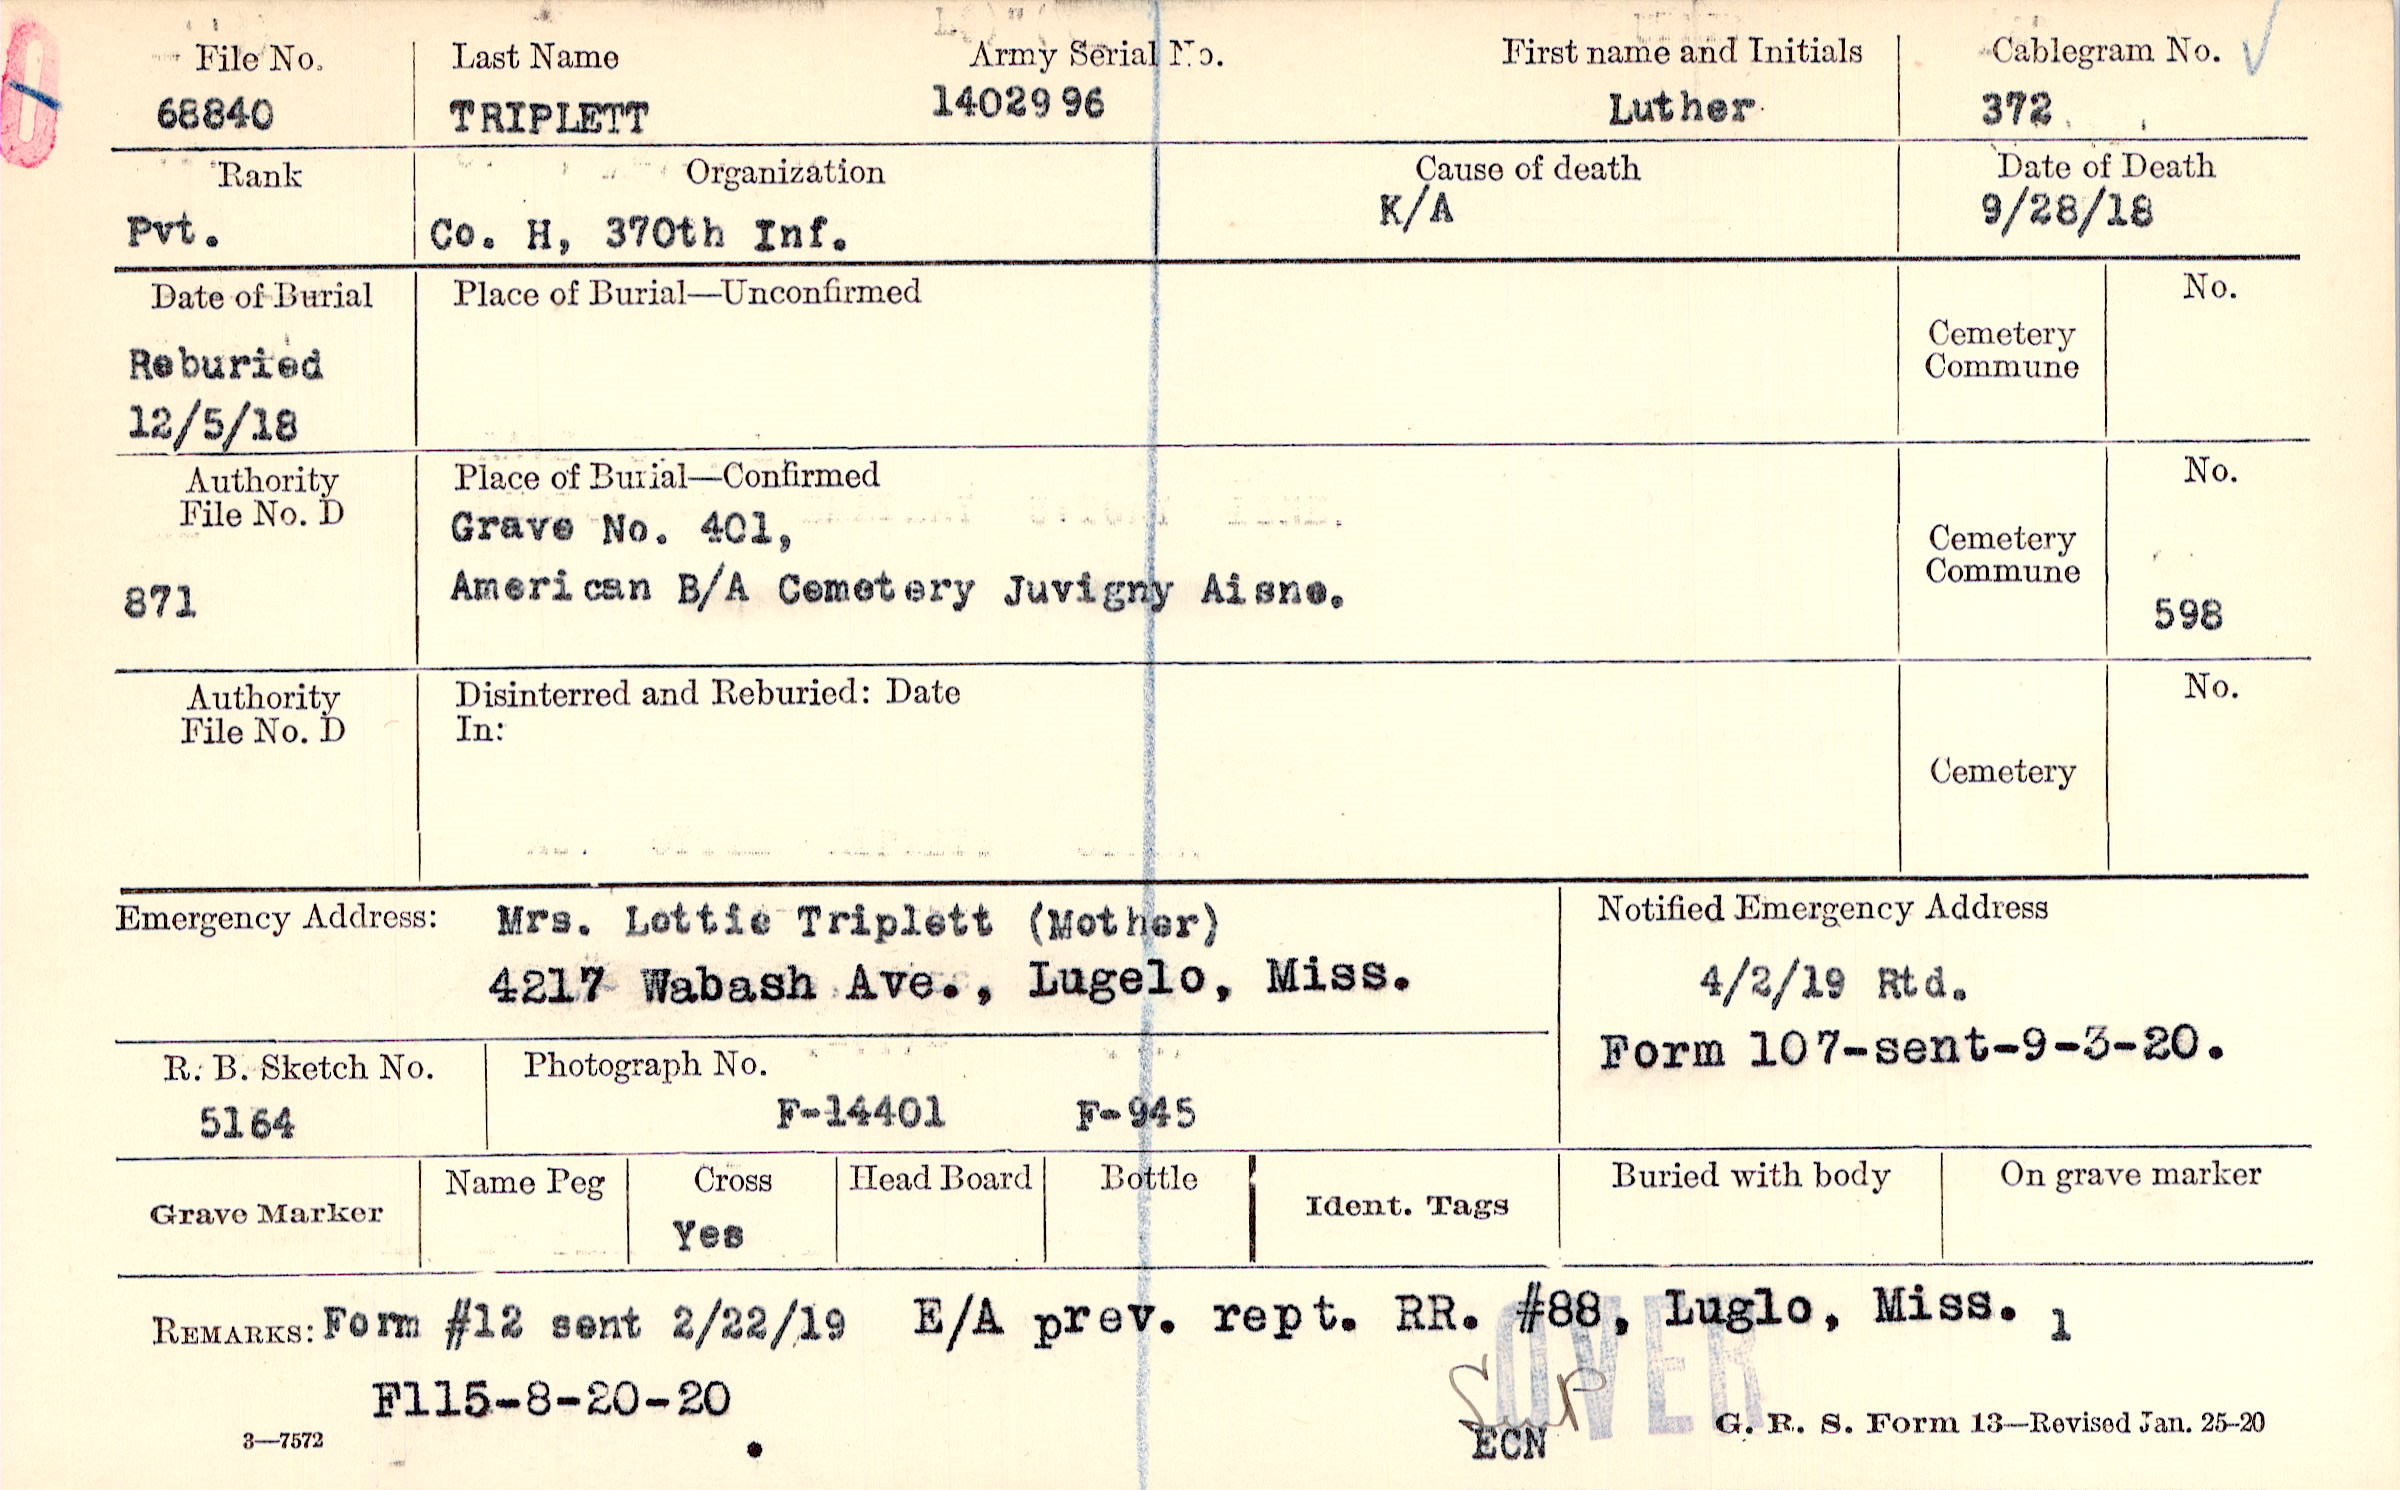 File No. Last Name Army Serial No. First name and Initials Cablegram No.
68840 TRIPLETT 1402996 Luther 372
Rank Organization Cause of death Date of Death
Pvt. Co. H, 370th Inf. K/A 9/28/18
Date of Burial Place of Burial—Unconfirmed No.
Cemetery
Commune
Reburied
12/5/18
Authority Place of Burial—Confirmed No.
File No. D
Grave No. 401,
Cemetery
Commune
871 American B/A Cemetery Juvigny Aisne. 598
Authority Disinterred and Reburied: Date No.
File No. D In:
Cemetery
Emergency Address: Mrs. Lottie Triplett (Mother)
4217 Wabash Ave., Lugelo, Miss.
Notified Emergency Address
4/2/19 Rtd.
Form 107-sent-9-3-20.
R. B. Sketch No. Photograph No.
5164 F-14401 F-945
Grave Marker Name Peg Cross Head Board Bottle Ident. Tags Buried with body On grave marker
Yes
REMARKS: Form #12 sent 2/22/19 E/A prev. rept. RR. #88, Luglo, Miss. 1
OVER
F115-8-20-20
3—7572 ECN G. R. S. Form 13—Revised Jan. 25-20